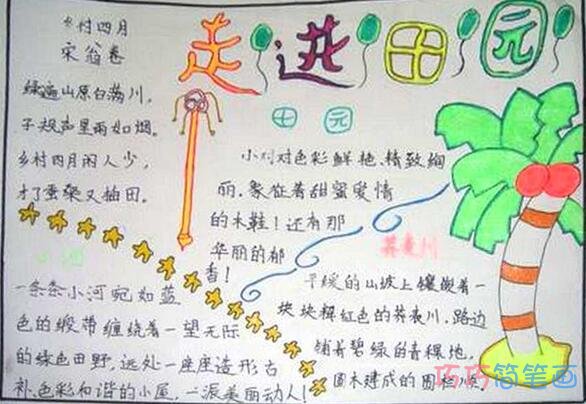 走进田园
乡村四月
宋 翁卷
绿遍山原白满川,
子规声里雨如烟。
乡村四月闲人少,
才了蚕桑又插田。
田园
小对对色彩鲜艳、精致绚
丽、象征着甜蜜爱情
的木鞋!还有那
华丽的郁
香!
小河
一条条小河宛如蓝
色的缎带缠绕着一望无际
的绿色田野,远处一座座造形古
补、色彩和谐的小屋,一派美丽动人!
荞麦川
平缓的山坡上镶嵌着一
块块粿红色的荞麦川,路边
铺着碧绿的青稞地,
圆木建成的围栏
巧巧简笔画